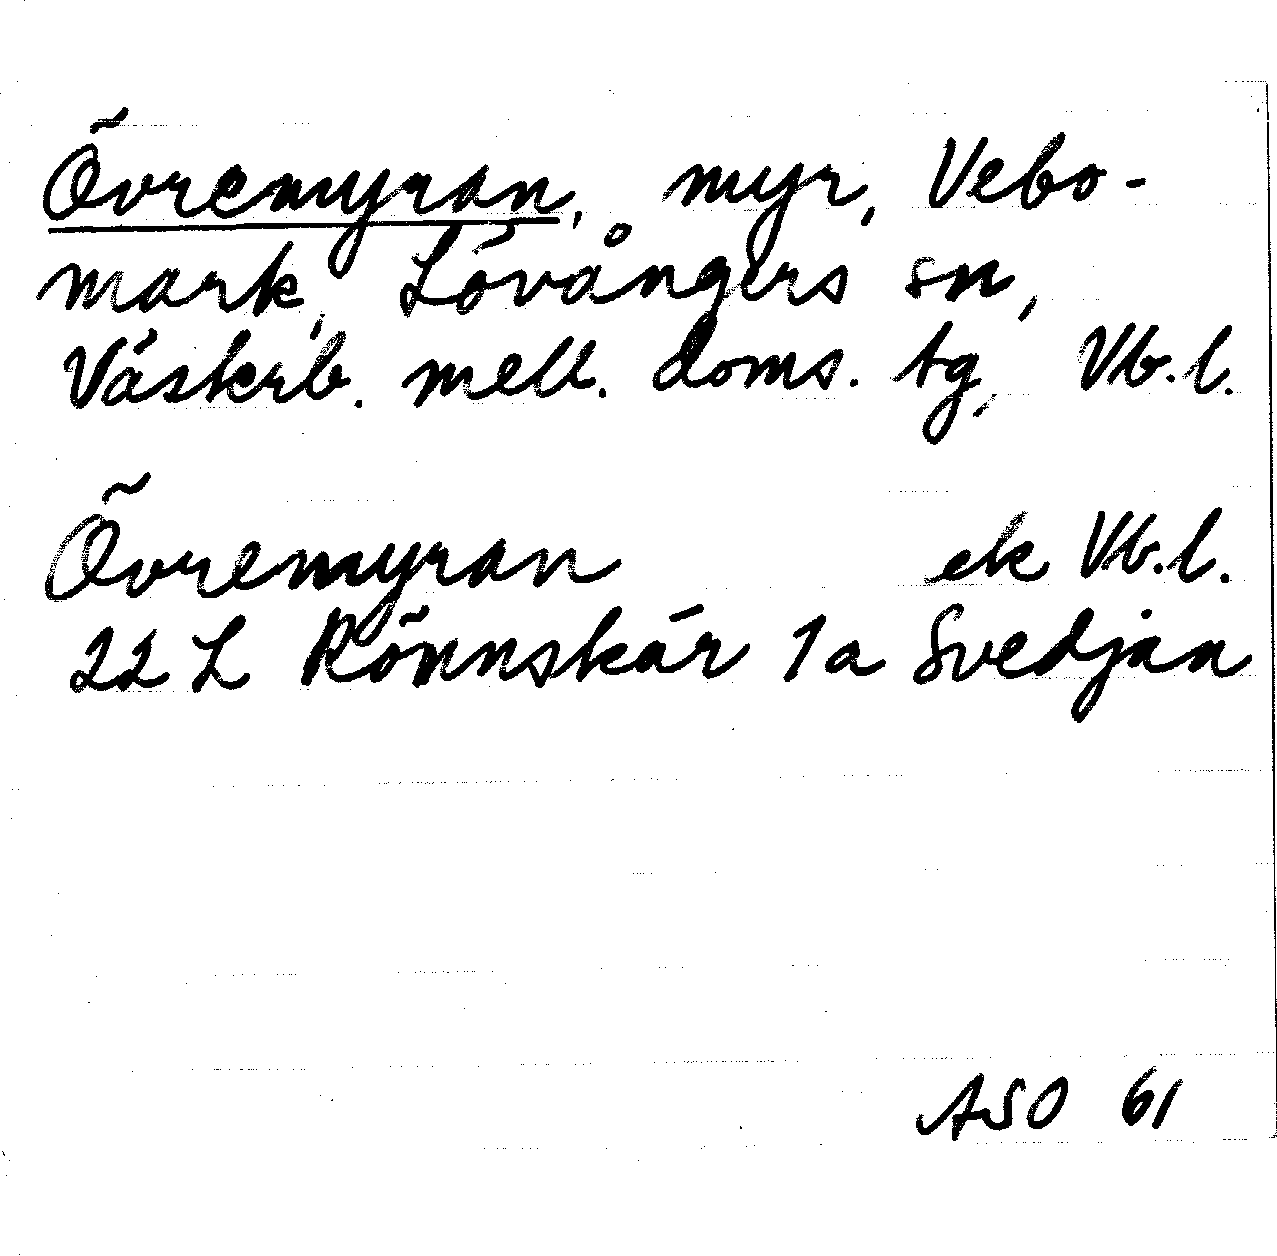 Övremyran, myr, Vebo-
mark, Lövångers sn,
Västerb. mell. doms. tg, Vb.l.
Övremyran ek Vb.l.
22 L Rönnskär 1a Svedjan
ASO 61